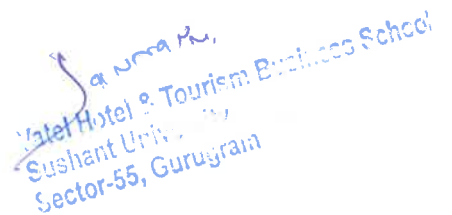 Vatel Hotel & Tourism Business School
Sushant University
Sector-55, Gurugram